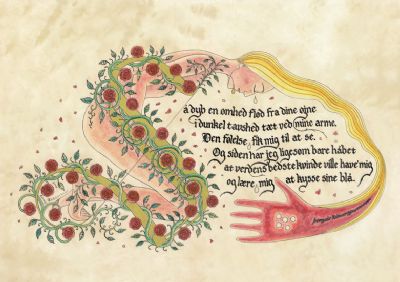 å dyb en ømhed flød fra dine øjne
i dunkel tavshed tæt ved mine arme.
Den følelse fik mig til at se.
Og siden har jeg ligesom bare håbet
at verdens bedste kvinde ville have' mig
og lære mig at kysse sine blå.